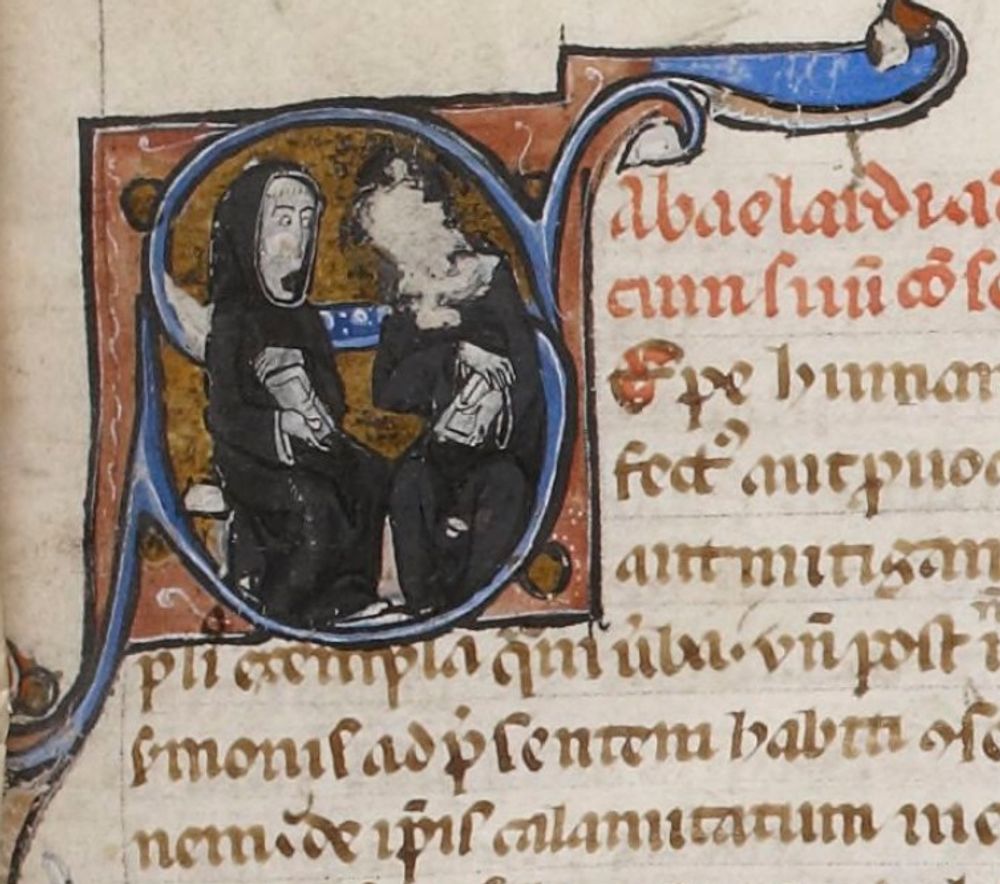 Abaelardi a
cium suu͞ co͞ so
Epe human
fect᷒ aut ꝓuoc
aut mitigan
pli exempla qͣm u͞ba. vn̄ post
ẜmonis ad p̾sentem habiti ꝯso
nem de ip̄is calamitatum me